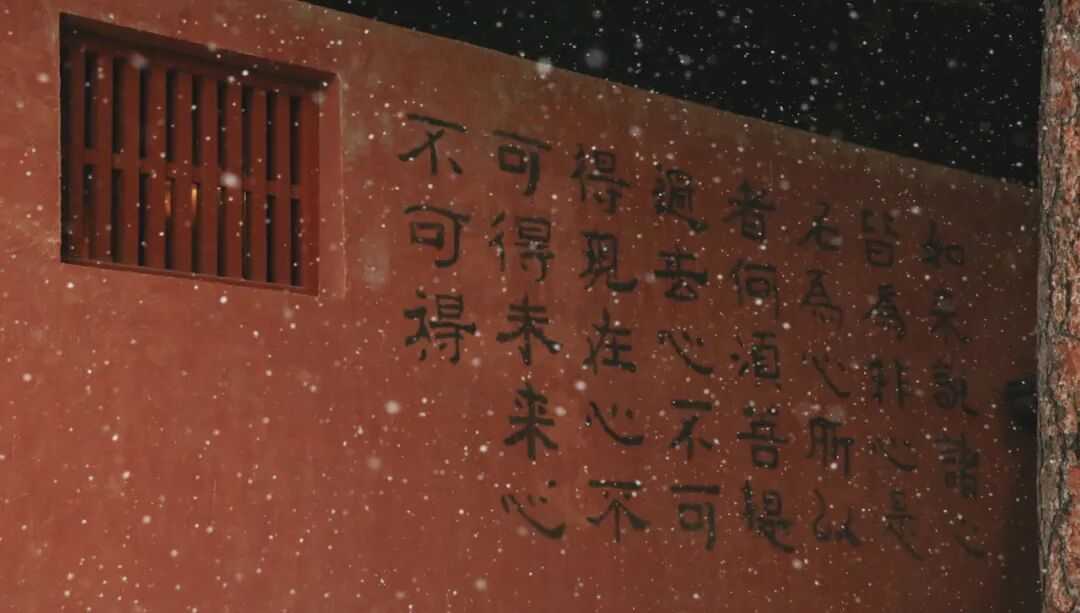 如来說諸心
皆為非心是
名為心所以
者何須菩提
過去心不可
得現在心不
可得未来心
不可得